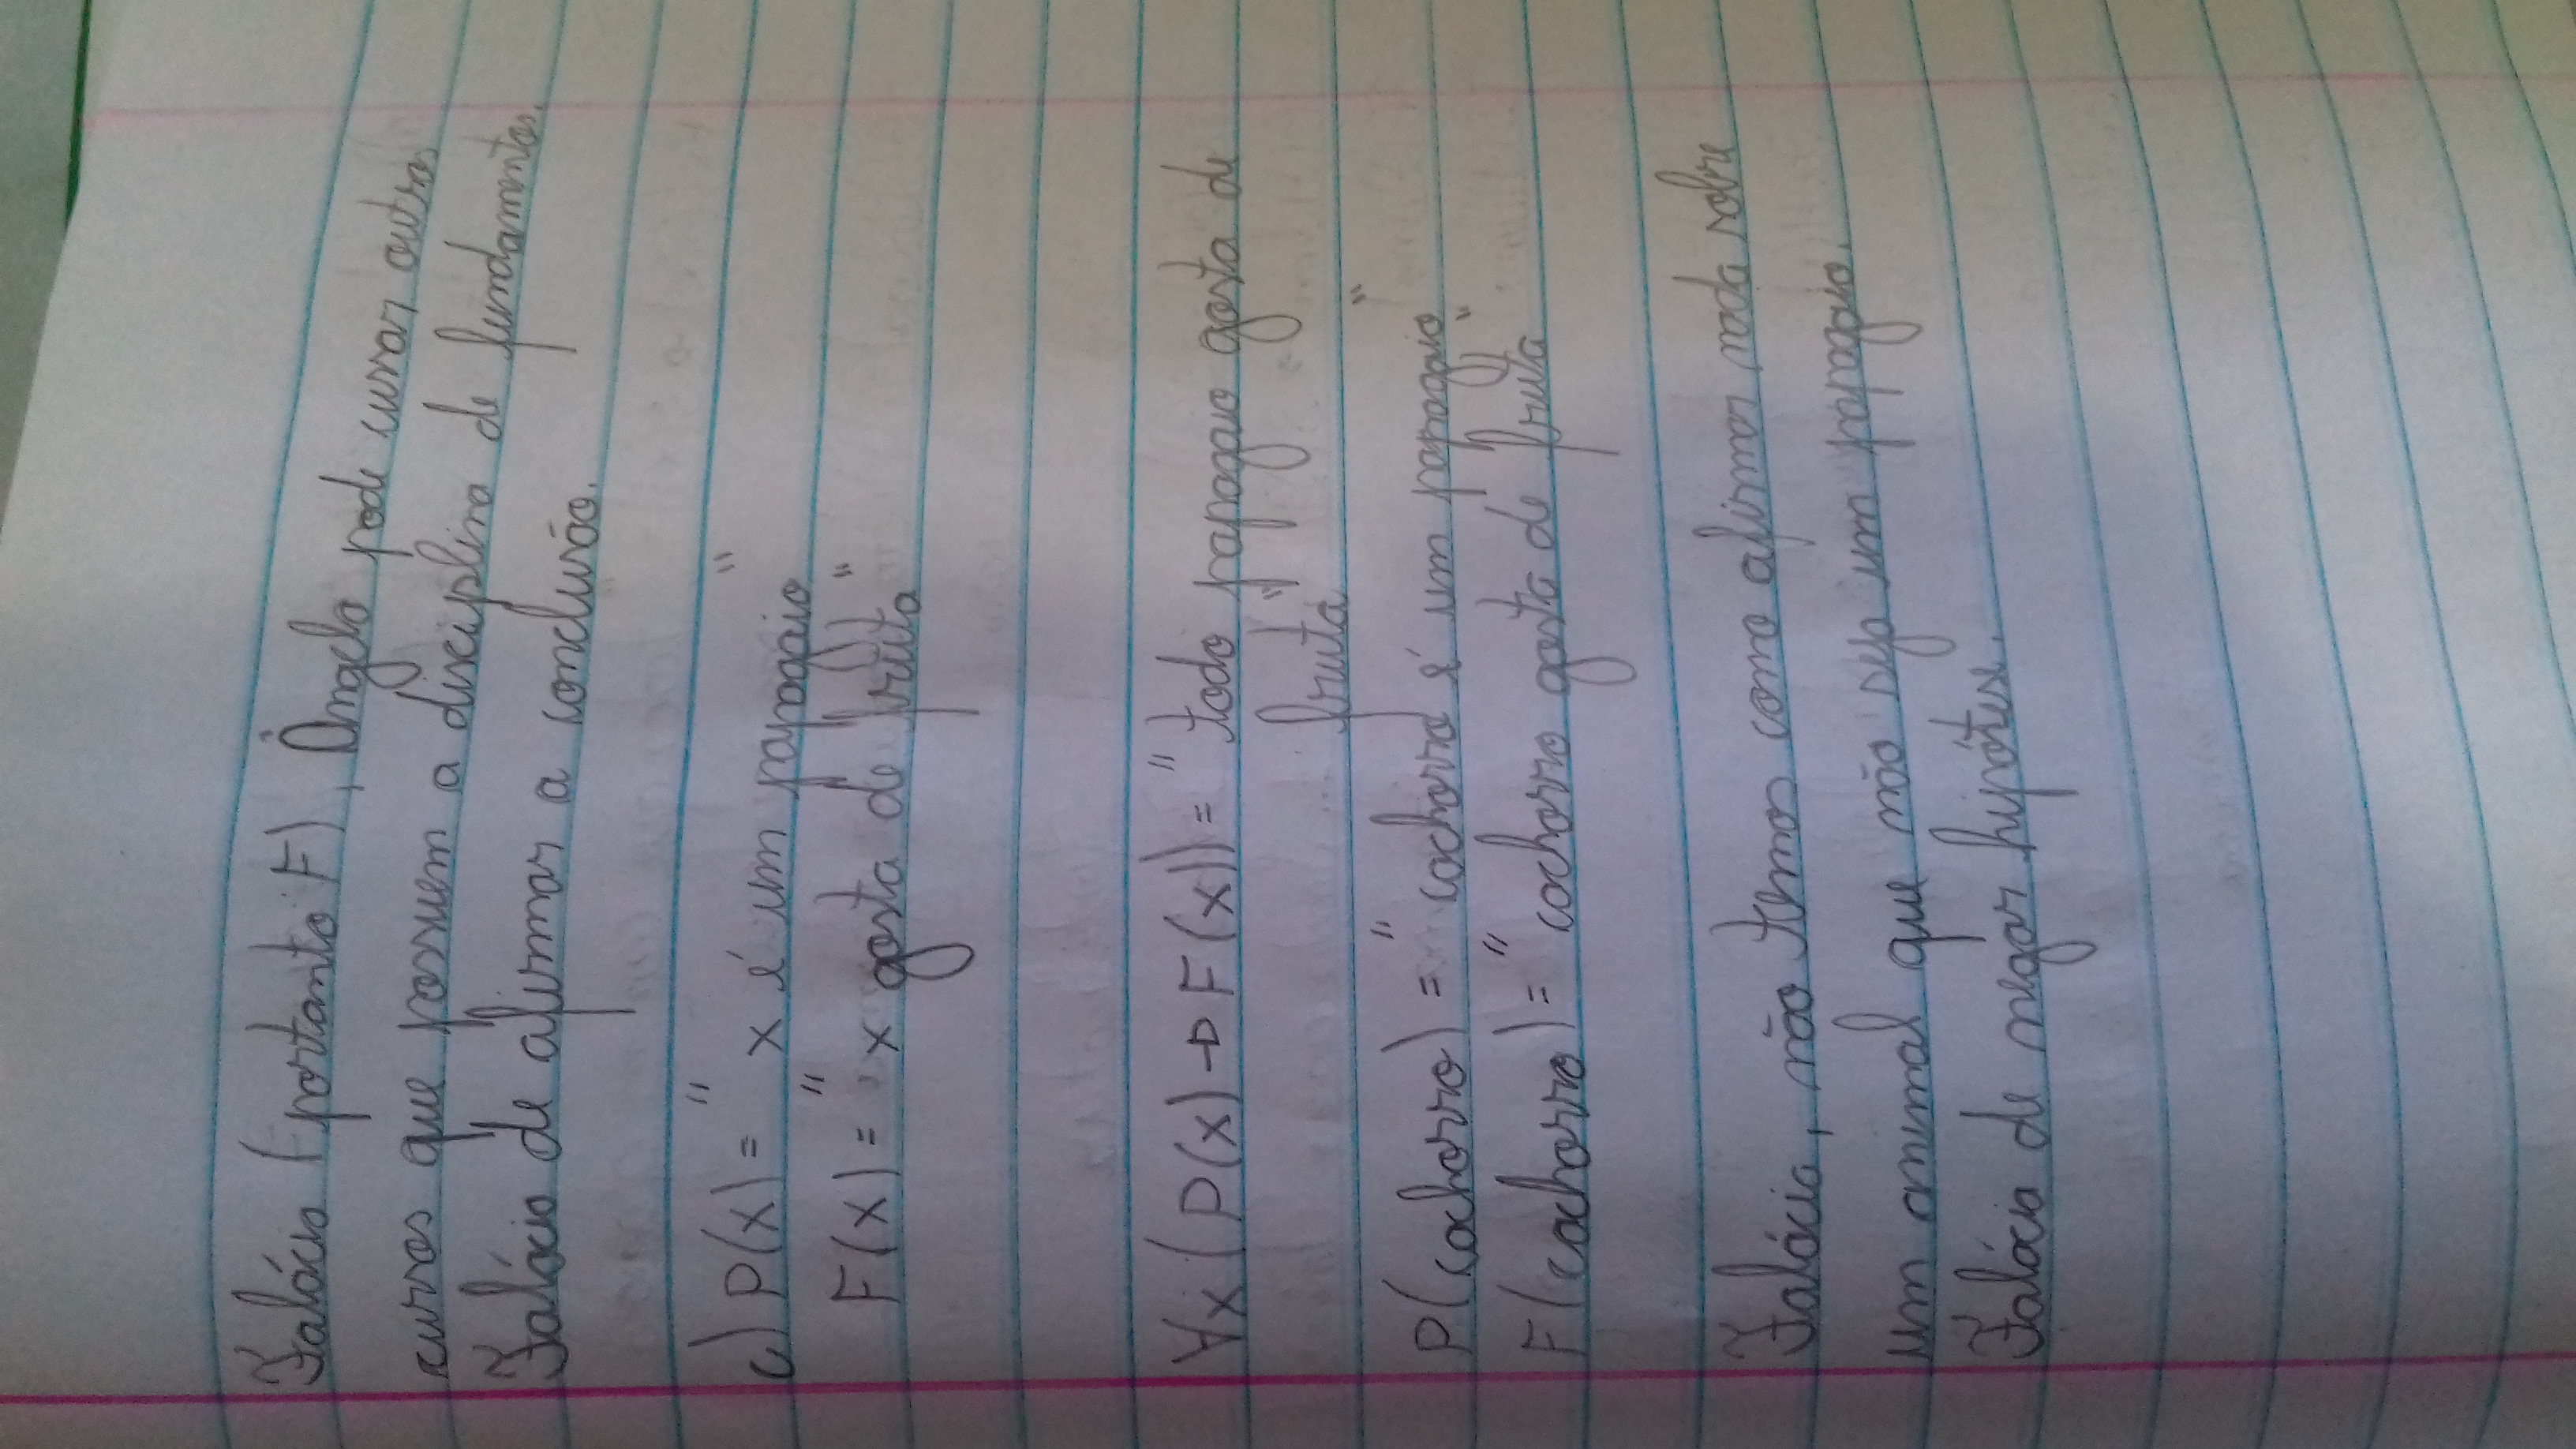 Falácia (portanto F), Ângelo pode cursar outros
cursos que possuem a disciplina de fundamentos.
Falácia de afirmar a conclusão.
c) P(x) = "x é um papagaio"
F(x) = "x gosta de fruta"
∀x (P(x) → F(x)) = "todo papagaio gosta de
fruta"
P(cachorro) = "cachorro é um papagaio"
F(cachorro) = "cachorro gosta de fruta"
Falácia, não temos como afirmar nada sobre
um animal que não seja um papagaio.
Falácia de negar hipótese.